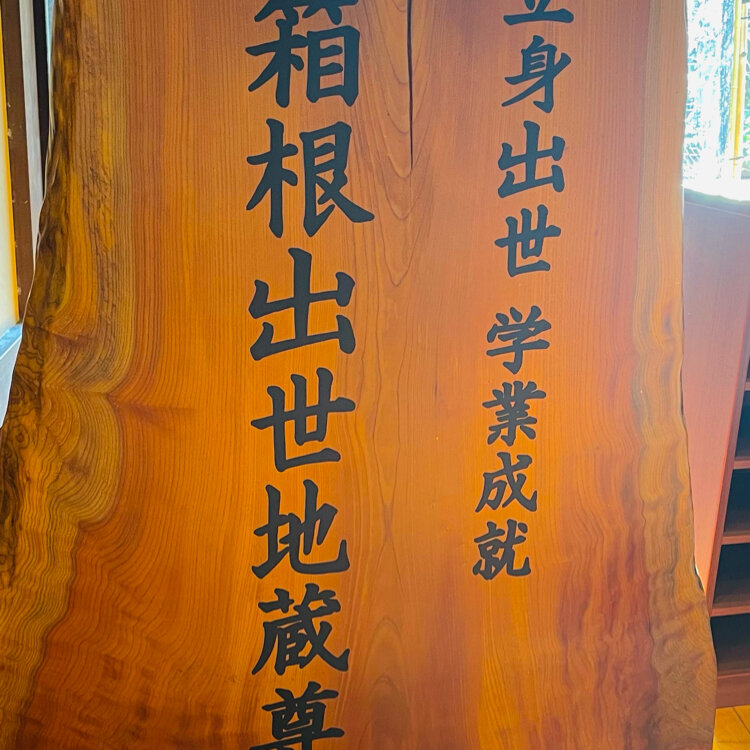 立身出世 学業成就
箱根出世地蔵尊